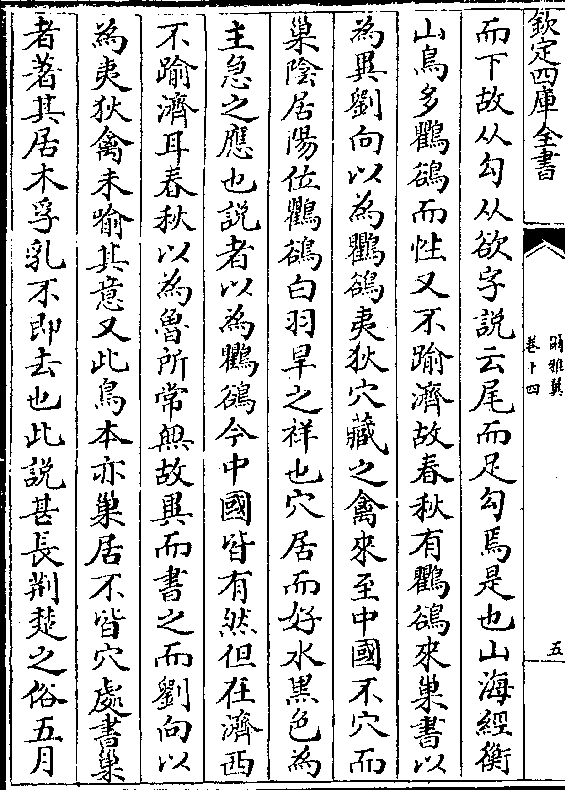 欽定四庫全書
爾雅翼
卷十四
五
而下故从勾从欲字説云尾而足勾焉是也山海經衡
山鳥多鸜鵒而性又不踰濟故春秋有鸜鵒來巢書以
為異劉向以為鸜鵒夷狄穴藏之禽來至中國不穴而
巢陰居陽位鸜鵒白羽旱之祥也穴居而好水黒色為
主急之應也説者以為鸜鵒今中國皆有然但在濟西
不踰濟耳春秋以為魯所常無故異而書之而劉向以
為夷狄禽未喻其意又此鳥本亦巢居不皆穴處書巢
者著其居木孚乳不即去也此説甚長荆楚之俗五月